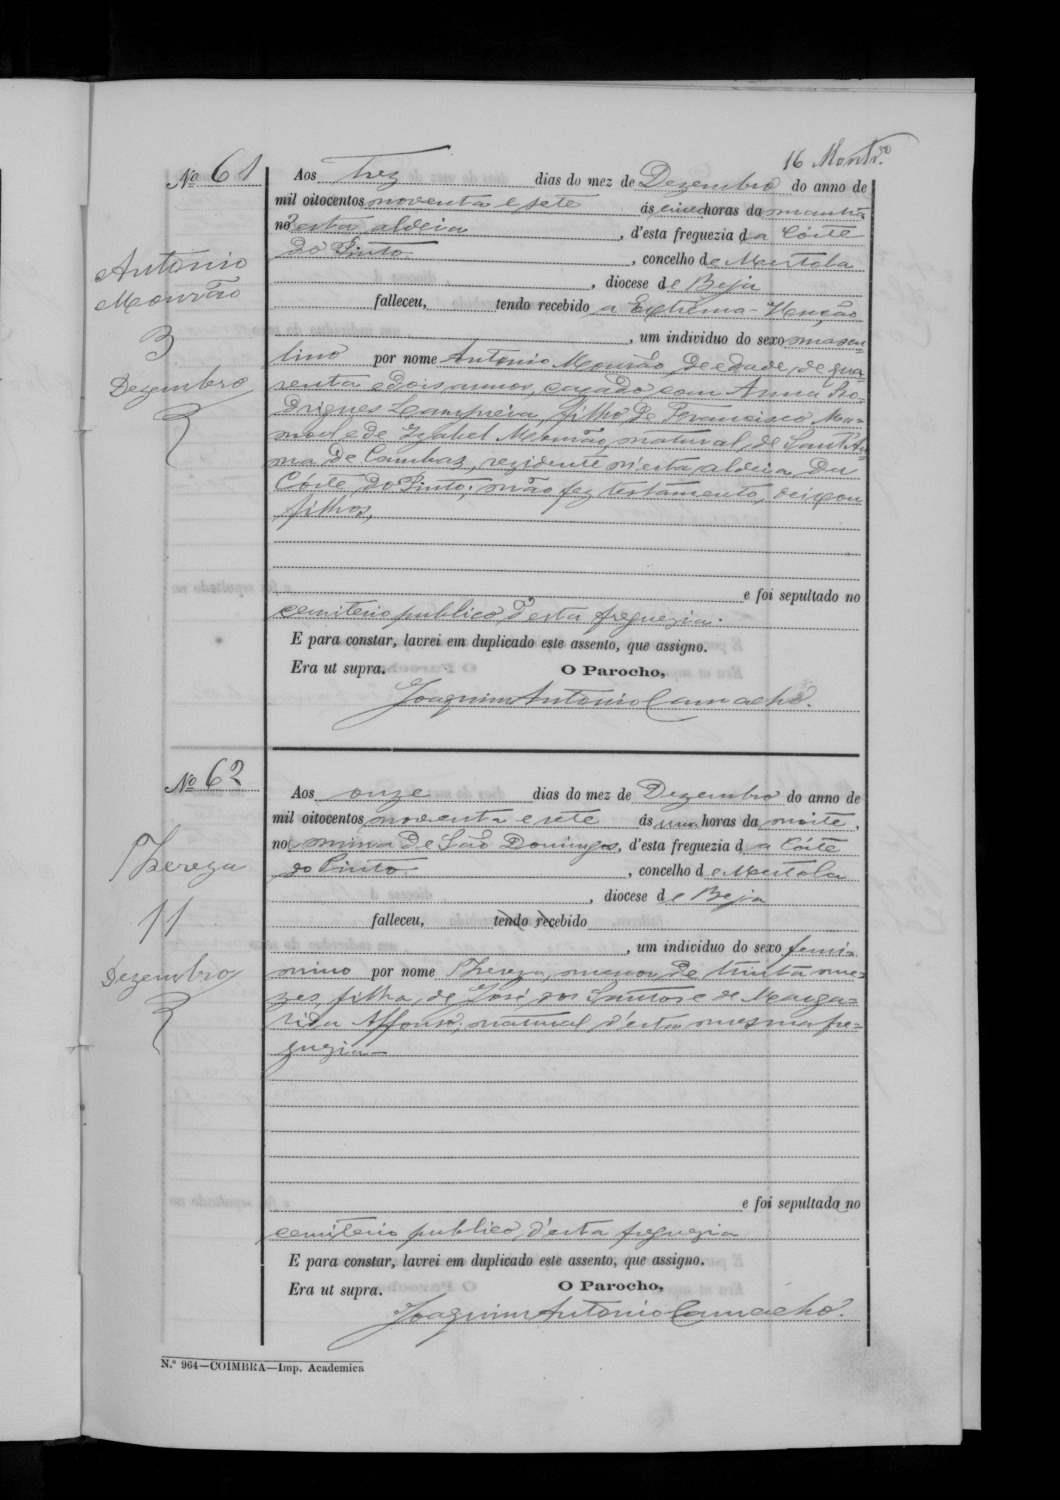 16 Montrº
Nº 61
Antonio
Mourão
3
Dezembro
Aos trez dias do mez de Dezembro do anno de
mil oitocentos noventa e sete ás cinco horas da manhã
nesta aldeia, d'esta freguezia da Córte
do Pinto, concelho de Mertola
, diocese de Beja
falleceu, tendo recebido a Extrema-Uncção
, um individuo do sexo mascu-
lino por nome Antonio Mourão, de edade, de qua-
renta e dois annos, cazado com Anna Ro-
drigues Lampreia, filho de Francisco Ma-
noel e de Izabel Mourão, natural de Sant'An-
na de Cambas, rezidente n'esta aldeia da
Córte do Pinto; não fez testamento, deixou
filhos,
e foi sepultado no
cemiterio publico d'esta freguezia.
E para constar, lavrei em duplicado este assento, que assigno.
Era ut supra. O Parocho,
Joaquim Antonio Camacho.
Nº 62
Thereza
11
Dezembro
Aos onze dias do mez de Dezembro do anno de
mil oitocentos noventa e sete ás uma horas da noite,
na mina de São Domingos, d'esta freguezia da Córte
do Pinto, concelho de Mertola
, diocese de Beja
falleceu, tendo recebido
, um individuo do sexo femi-
nino por nome Thereza, menor de trinta me-
zes, filha de José dos Santos e de Marga-
rida Affonso, natural d'esta mesma fre-
guezia—
e foi sepultada no
cemiterio publico d'esta freguezia
E para constar, lavrei em duplicado este assento, que assigno.
Era ut supra. O Parocho,
Joaquim Antonio Camacho.
N.º 964—COIMBRA—Imp. Academica